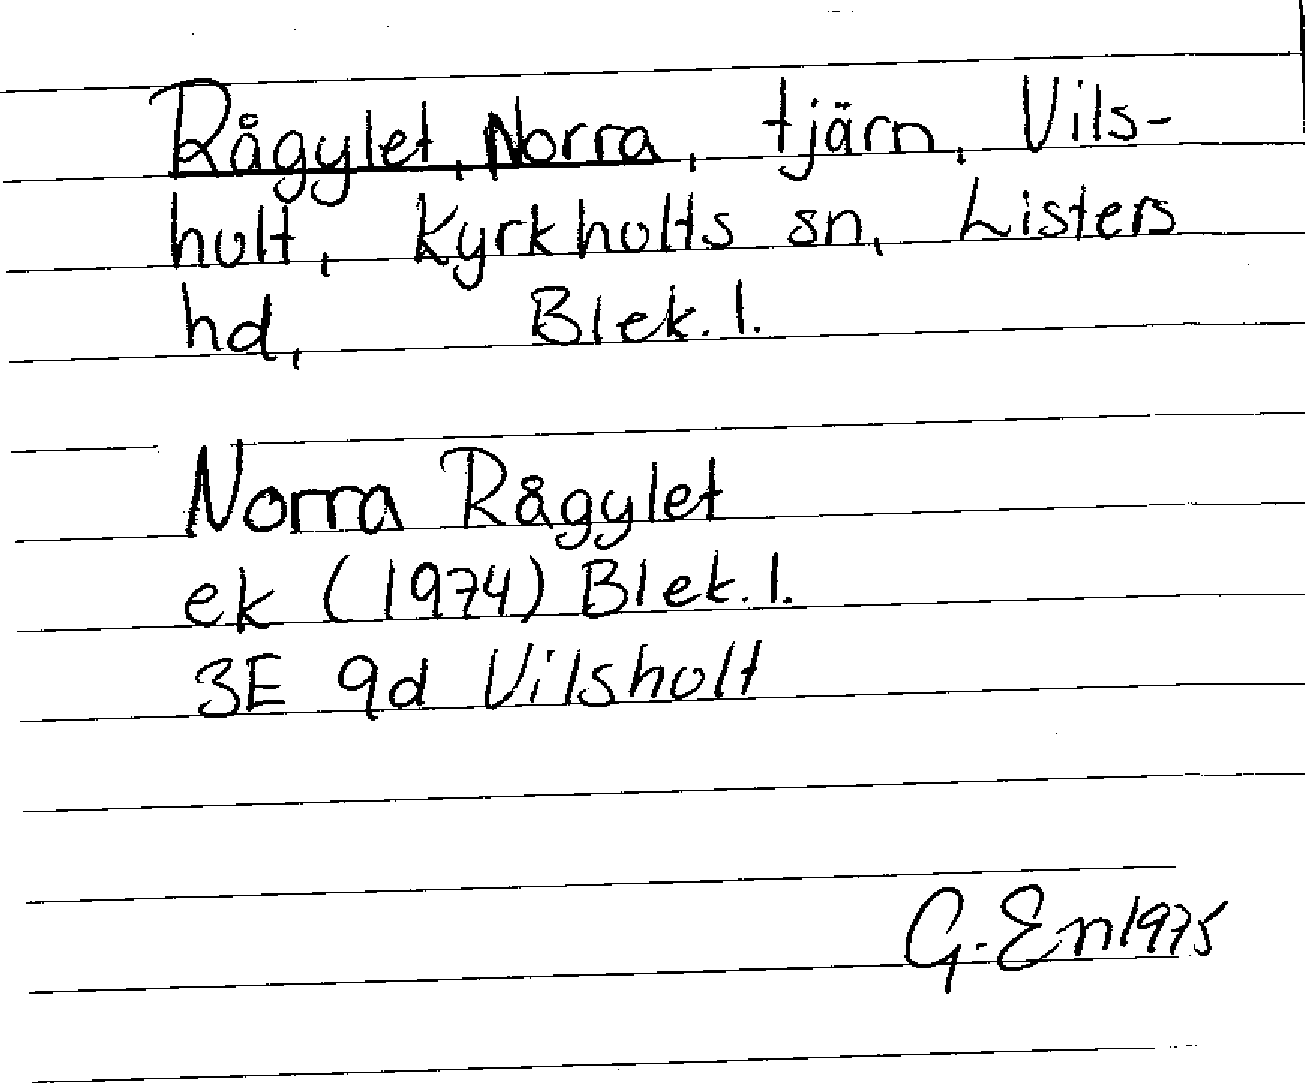 Rågylet, Norra, tjärn, Vils-
hult, Kyrkhults sn, Listers
hd, Blek. l.
Norra Rågylet
ek (1974) Blek. l.
3E 9d Vilshult
G. En 1975